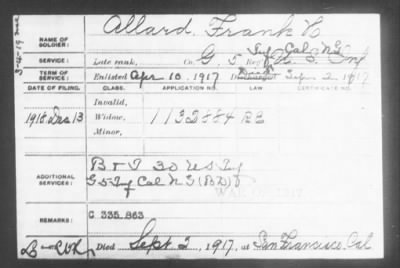 Allard, Frank H
NAME OF SOLDIER:
Inf Cal N G
SERVICE: Late rank, Co. G, 5 Reg't U.S. Inf
TERM OF SERVICE: Enlisted Apr 10, 1917 Sep. 2, 1917
DATE OF FILING. CLASS. APPLICATION NO. LAW CERTIFICATE NO.
Invalid,
1918 Dec 13 Widow, 1132884
Minor,
ADDITIONAL SERVICES: 30 US Inf
G 5 Inf Cal N G
REMARKS: C 335,863
Died Sept 2, 1917, at San Francisco, Cal